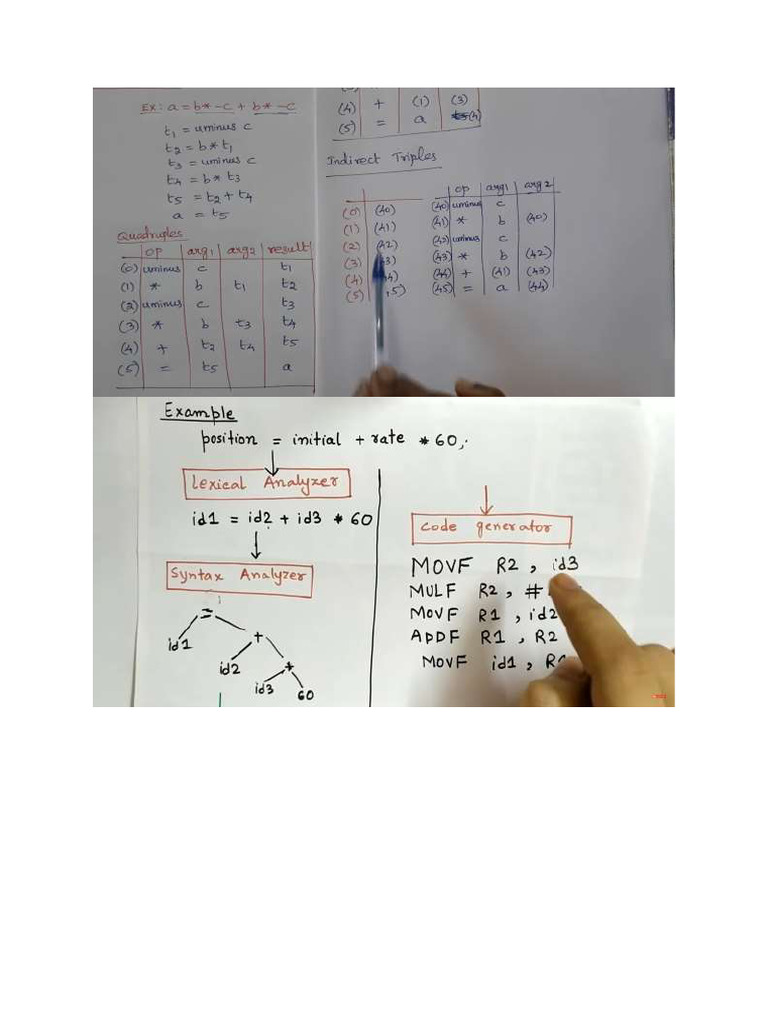 Ex: a = b * - c + b * - c
t1 = uminus c
t2 = b * t1
t3 = uminus c
t4 = b * t3
t5 = t2 + t4
a = t5
Quadruples
op arg1 arg2 result
(0) uminus c t1
(1) * b t1 t2
(2) uminus c t3
(3) * b t3 t4
(4) + t2 t4 t5
(5) = t5 a
(4) + (1) (3)
(5) = a (4)
Indirect Triples
(0) (40)
(1) (41)
(2) (42)
(3)
(4)
(5)
op arg1 arg2
(40) uminus c
(41) * b (40)
(42) uminus c
(43) * b (42)
(44) + (41) (43)
(45) = a (44)
Example
position = initial + rate * 60;
Lexical Analyzer
id1 = id2 + id3 * 60
Syntax Analyzer
=
id1 +
id2 *
id3 60
Code generator
MOVF R2, id3
MULF R2, #
MOVF R1, id2
ADDF R1, R2
MOVF id1,